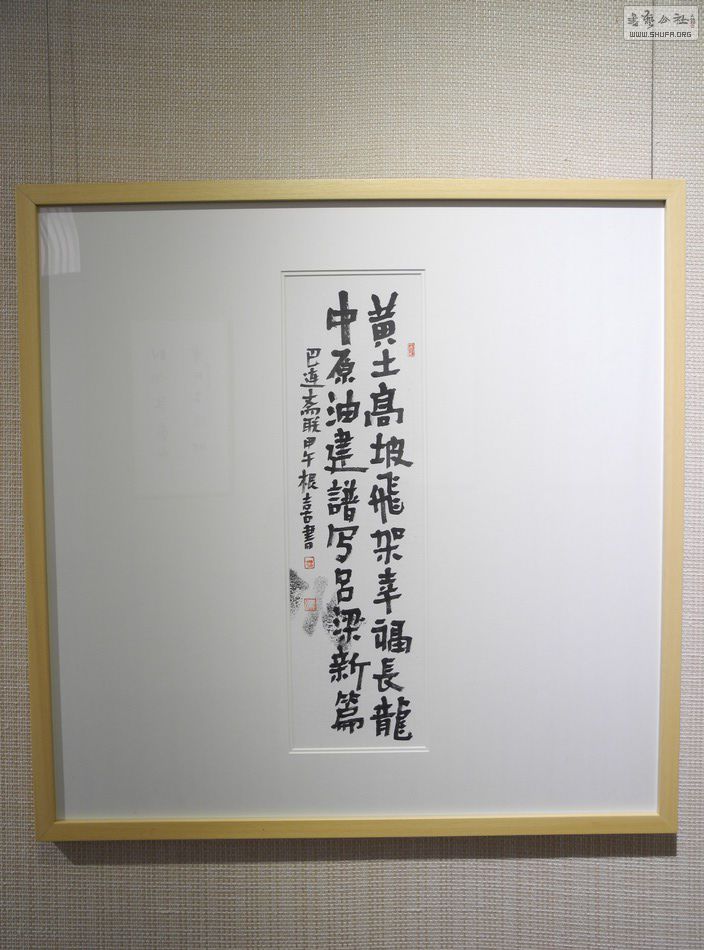 黄土高坡飛架幸福長龍
中原油建譜写吕梁新篇
巴連斋联甲午根喜書
書藝公社
WWW.SHUFA.ORG